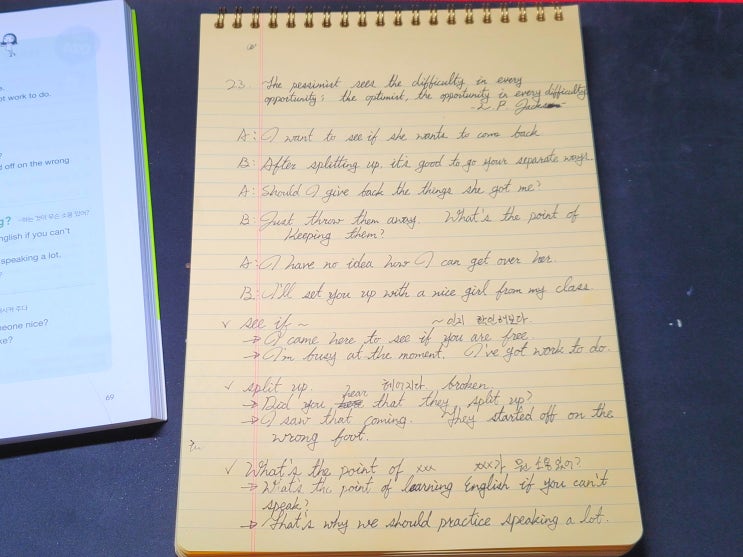 e.
ot work to do.
?
d off on the wrong
g? ~하는 것이 무슨 소용 있어?
nglish if you can't
speaking a lot.
?
시켜 주다
eone nice?
ke?
69
23. The pessimist sees the difficulty in every
opportunity; the optimist, the opportunity in every difficulty
- L. P. Jacks
A: I want to see if she wants to come back
B: After splitting up, it's good to go your separate ways.
A: Should I give back the things she got me?
B: Just throw them away. What's the point of
keeping them?
A: I have no idea how I can get over her.
B: I'll set you up with a nice girl from my class.
✓ see if ~ ~인지 확인해보다.
→ I came here to see if you are free.
→ I'm busy at the moment. I've got work to do.
✓ split up. 헤어지다. broken
→ Did you hear that they split up?
→ I saw that coming. They started off on the
wrong foot.
✓ What's the point of xxx xxx가 뭔 소용있어?
→ What's the point of learning English if you can't
speak?
→ That's why we should practice speaking a lot.